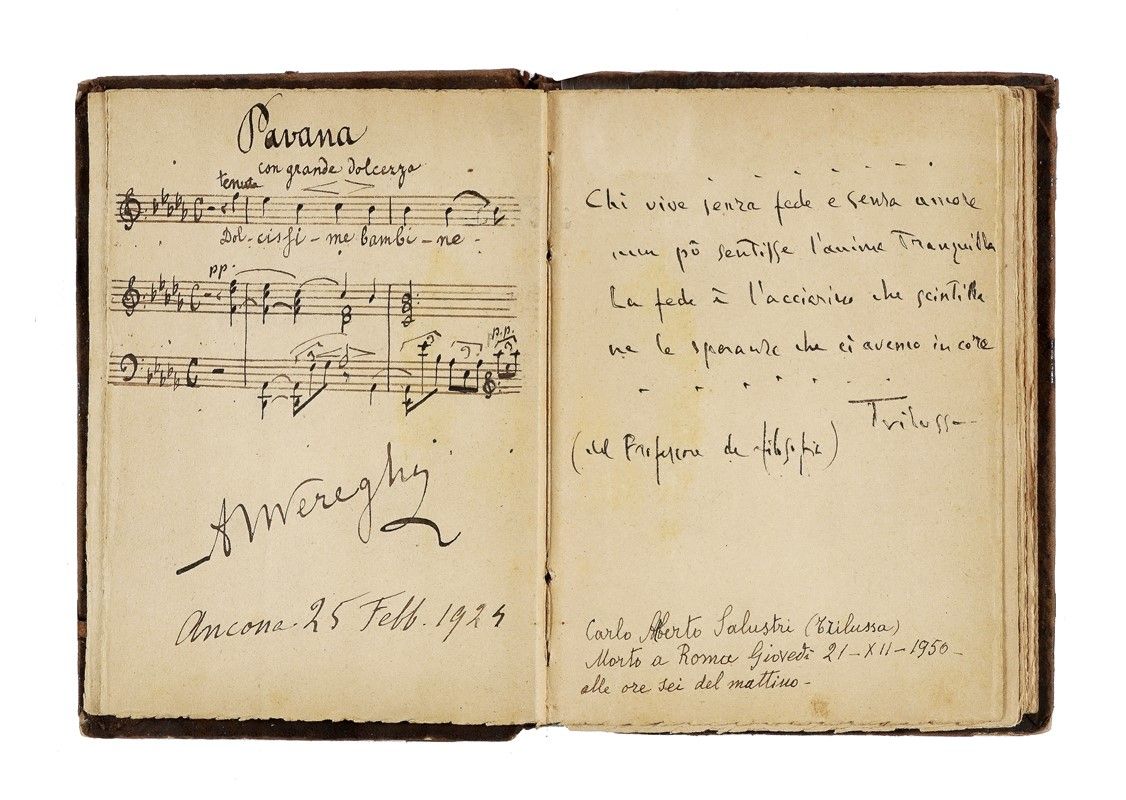 Pavana
con grande dolcezza
tenuta
Dol-cissi-me bambi-ne-
pp.
3
3
3
p.p.
Ancona. 25 Febb. 192
Chi vive senza fede e senza amore
nun pô sentisse l'anima tranquilla
La fede è l'acciarino che scintilla
ne le speranze che ci avemo in core
Trilussa
(dal Professore de filosofia)
Carlo Alberto Salustri (Trilussa)
Morto a Roma Giovedì 21-XII-1950-
alle ore sei del mattino-